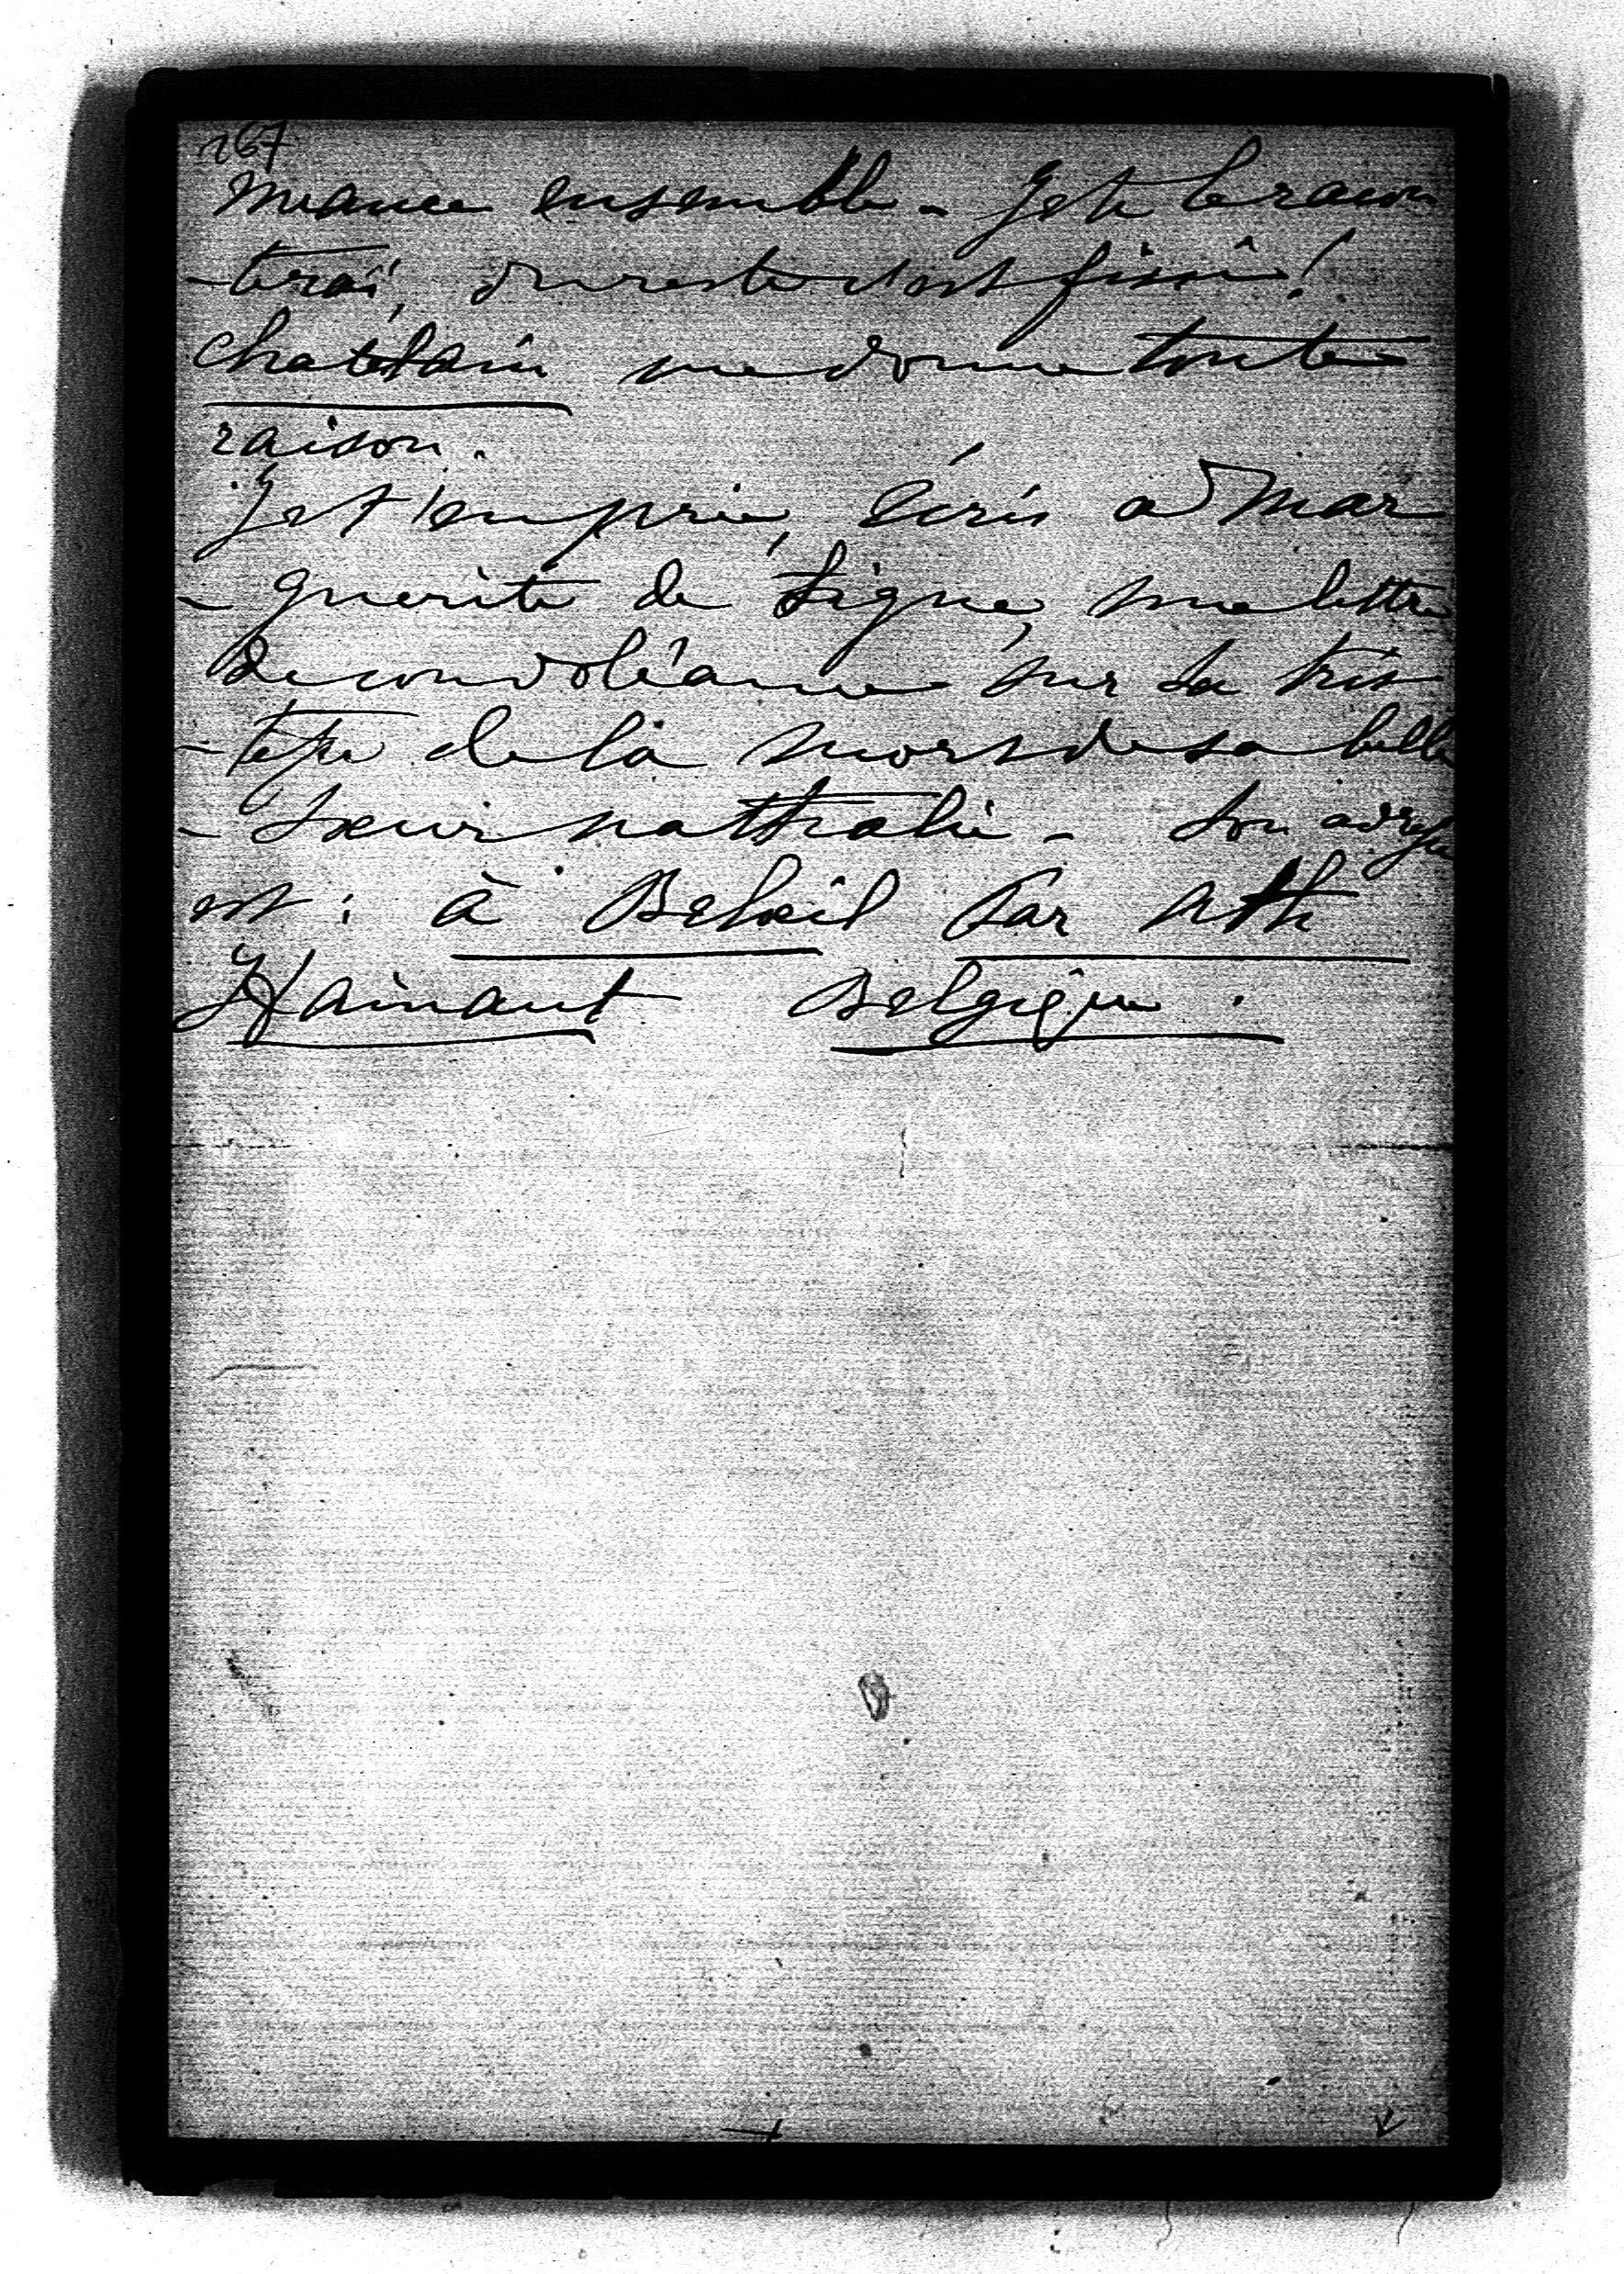 167
ensemble - Je te le racon
-terai, du reste c'est fini!
Chatelain me donne toute
raison.
Je t'en prie, écris a Mar
-guerite de Ligne, une lettre
de condoléance sur la tris
-tesse de la mort de sa belle
-soeur Natthalie - Son adresse
est : à Beloeil par Ath
Hainaut Belgique.